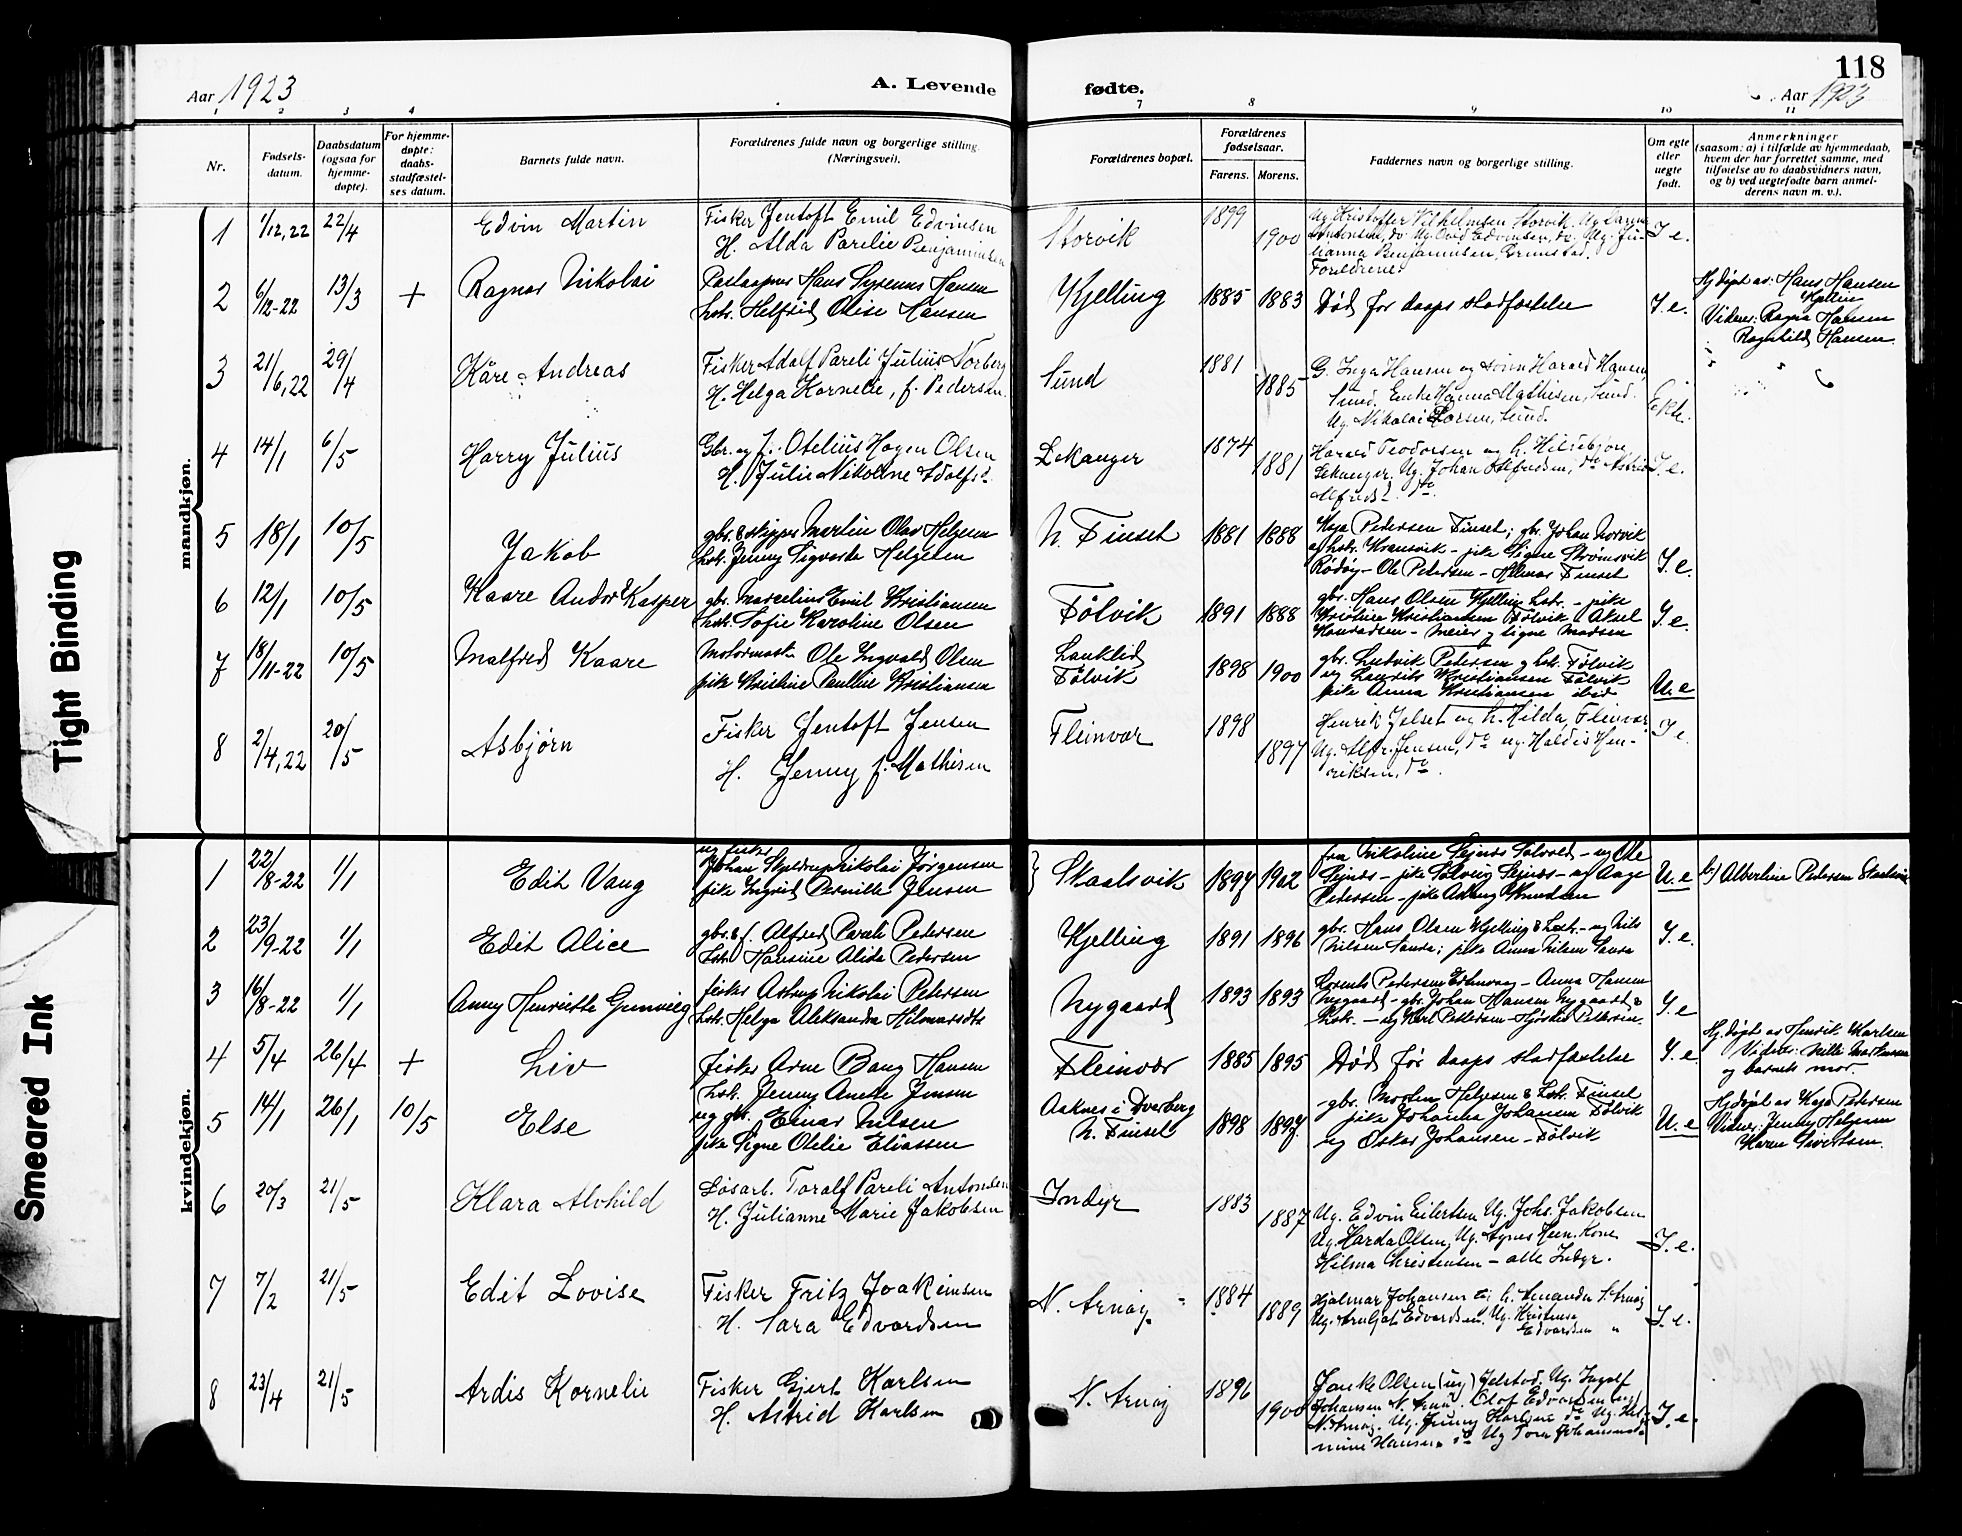 118
Aar 1923
A. Levende fødte.
Aar 1923
1 2 3 4 7 8 9 10 11
Nr.
Fødsels-
datum.
Daabsdatum
(ogsaa for
hjemme-
døpte).
For hjemme-
døpte:
daabs-
stadfæstel-
ses datum.
Barnets fulde navn.
Forældrenes fulde navn og borgerlige stilling.
(Næringsvei).
Forældrenes bopæl.
Forældrenes
fødselsaar.
Farens. Morens.
Faddernes navn og borgerlige stilling.
Om egte
eller
uegte
født.
Anmerkninger
(saasom: a) i tilfælde av hjemmedaab,
hvem der har forrettet samme, med
tilføielse av to daabsvidners navn,
og b) ved uegtefødte barn anmel-
derens navn m. v.).
mandkjøn.
1 1/12,22 22/4 Edvin Martin
Fisker Jentoft Emil Edvinsen
H. Alda Parelie Benjaminsen
Storvik 1899 1900
Ug. Kristoffer Vilhelmsen Storvik. Ug.
Antonsen, do. Ug. Edvinsen, do. Ug. Ju-
lianna Benjaminsen, Grimstad.
Foreldrene
I e.
2 6/12-22 13/3 + Ragnar Nikolai
Hans Syrenus Hansen
hstr. Helfrid Olise Hansen
Kjelling 1885 1883
Død før daaps stadfæstelse
I. e.
Hjdøpt av: Hans Hansen
Kjelling
Vidner: Ragna Hansen
Ragnhild Hansen.
3 21/6,22 29/4 Kåre Andreas
Fisker Adolf Pareli Julius Norberg
H. Helga Kornelie, f. Pedersen.
Sund 1881 1885
G. Inga Hansen og sønn Harald Hansen,
Sund. Enke Hanna Mathisen, Sund.
Ug. Nikolai Larsen, Sund.
Ekte.
4 14/1 6/5 Harry Julius
Gbr. og f. Otelius Hagen Olsen
H. Julie Nikoline Adolfsd.
Lekanger 1874 1881
Harald Teodorsen og h. Hildebjørg
Lekanger. Ug. Johan Alfredsen, do Astrid
Alfredsd. do.
I. e.
5 18/1 10/5 Jakob
gbr. & skipper Martin Olav Helgesen
hstr. Jenny Sigvarda Helgesen
N. Finset 1881 1888
Kaja Pedersen Finset; gbr. Johan Norvik
og hstr. Kransvik - pike Signe Strømsvik
Rødøy - Ole Petersen - Helmar Finset
I. e.
6 12/1 10/5 Kaare Andor Kasper
gbr. Marcelius Emil Kristiansen
hstr. Sofie Karoline Olsen
Følvik 1891 1888
gbr. Hans Olsen Kjelling hstr. - pike
Kristine Kristiansen Følvik - Aksel
Konradsen - Meier og Signe Madsen
I e.
7 18/11-22 10/5 Malfred Kaare
Motormask. Ole Ingvald Olsen
pike Kristine Pauline Kristiansen
Lanklid
Følvik
1898 1900
gbr. Ludvik Petersen og hstr. Følvik
ug Laurits Kristiansen Følvik
pike Anna Kristiansen ibid
U. e
8 2/4,22 20/5 Asbjørn
Fisker Jentoft Jensen
H. Jenny f. Mathisen
Fleinvær 1898 1897
Henrik Jelset og h. Hilda, Fleinvær
Ug. Alfr. Jensen, do ug. Haldis Hen-
riksen, do.
I e.
kvindekjøn.
1 22/8-22 1/1 Edit Vang
ug fisker
Johan Skjeldrup Nikolai Jørgensen
pike Ingrid Pernille Jensen
Skaalsvik 1897 1902
fru Nikoline Seines Solvold - ug Ole
Seines - pike Solveig Seines - ug Aage
Petersen - pike Aslaug Knudsen
U. e
b) Albertine Petersen Skaalsvik
2 23/9-22 1/1 Edit Alice
gbr. & f. Alfred Pareli Petersen
hstr. Hansine Alida Petersen
Kjelling 1891 1896
gbr. Hans Olsen Kjelling & hstr. - ug Nils
Nilsen Saura; pike Anna Nilsen Saura
I. e.
3 16/8-22 1/1 Anny Henriette Gunvieg
fisker Astrup Nikolai Petersen
hstr. Helga Aleksandra Hilmarsdtr
Nygaard 1893 1893
Lorents Pedersen - Anna Hansen
Nygaard - gbr. Johan Hansen Nygaard &
hstr. - ug Karl Pettersen - Hjørdis Pettersen.
I. e
4 5/4 26/4 + Liv
fisker Arne Bang Hansen
hstr. Jenny Anette Jensen
Fleinvær 1885 1895
Død før daaps stadfæstelse
I. e
Hjdøpt av Henrik Karlsen
Vidner: Milli Markussen
og barnets mor.
5 14/1 26/1 10/5 Else
ug gbr. Einar Nilsen
pike Signe Otelie Eliassen
Aaknes i Dverberg
N. Finset
1898 1897.
gbr. Morten Helgesen & hstr. Finset
pike Johanna Johansen Følvik
ug Oskar Johansen - Følvik
U. e
Hjdøpt av Kaja Petersen
Vidner: Jenny Helgesen
Karen Sivertsen.
6 20/3 21/5 Klara Alvhild
Løsarb. Toralf Pareli Antonsen
H. Julianne Marie Jakobsen
Indyr 1883 1887
Ug. Edvin Eilertsen Ug. Johs. Jakobsen
Ug. Harda Olsen, Ug. Agnes Heen. Kone
Hilma Kristensen - alle Indyr.
I. e.
7 7/2 21/5 Edit Lovise
Fisker Fritz Joakimsen
H. Sara Edvardsen
N. Arnøy 1884 1889
Hjalmar Johansen og h. Amanda S. Arnøy
Ug. Arnljot Edvardsen. Ug. Kristense
Edvardsen "
I. e.
8 23/4 21/5 Ardis Kornelie
Fisker Gjert Karlsen
H. Astrid Karlsen
N. Arnøy 1896 1900
Janke Olsen (ug) Jelstad. Ug. Ingolf
Johansen N. Arnøy. Olof Edvardsen (ug)
N. Arnøy. Ug. Jenny Karlsen do Ug. Her-
mine Hansen do Ug Tora Johansen do
I. e.
Tight Binding
Smeared Ink